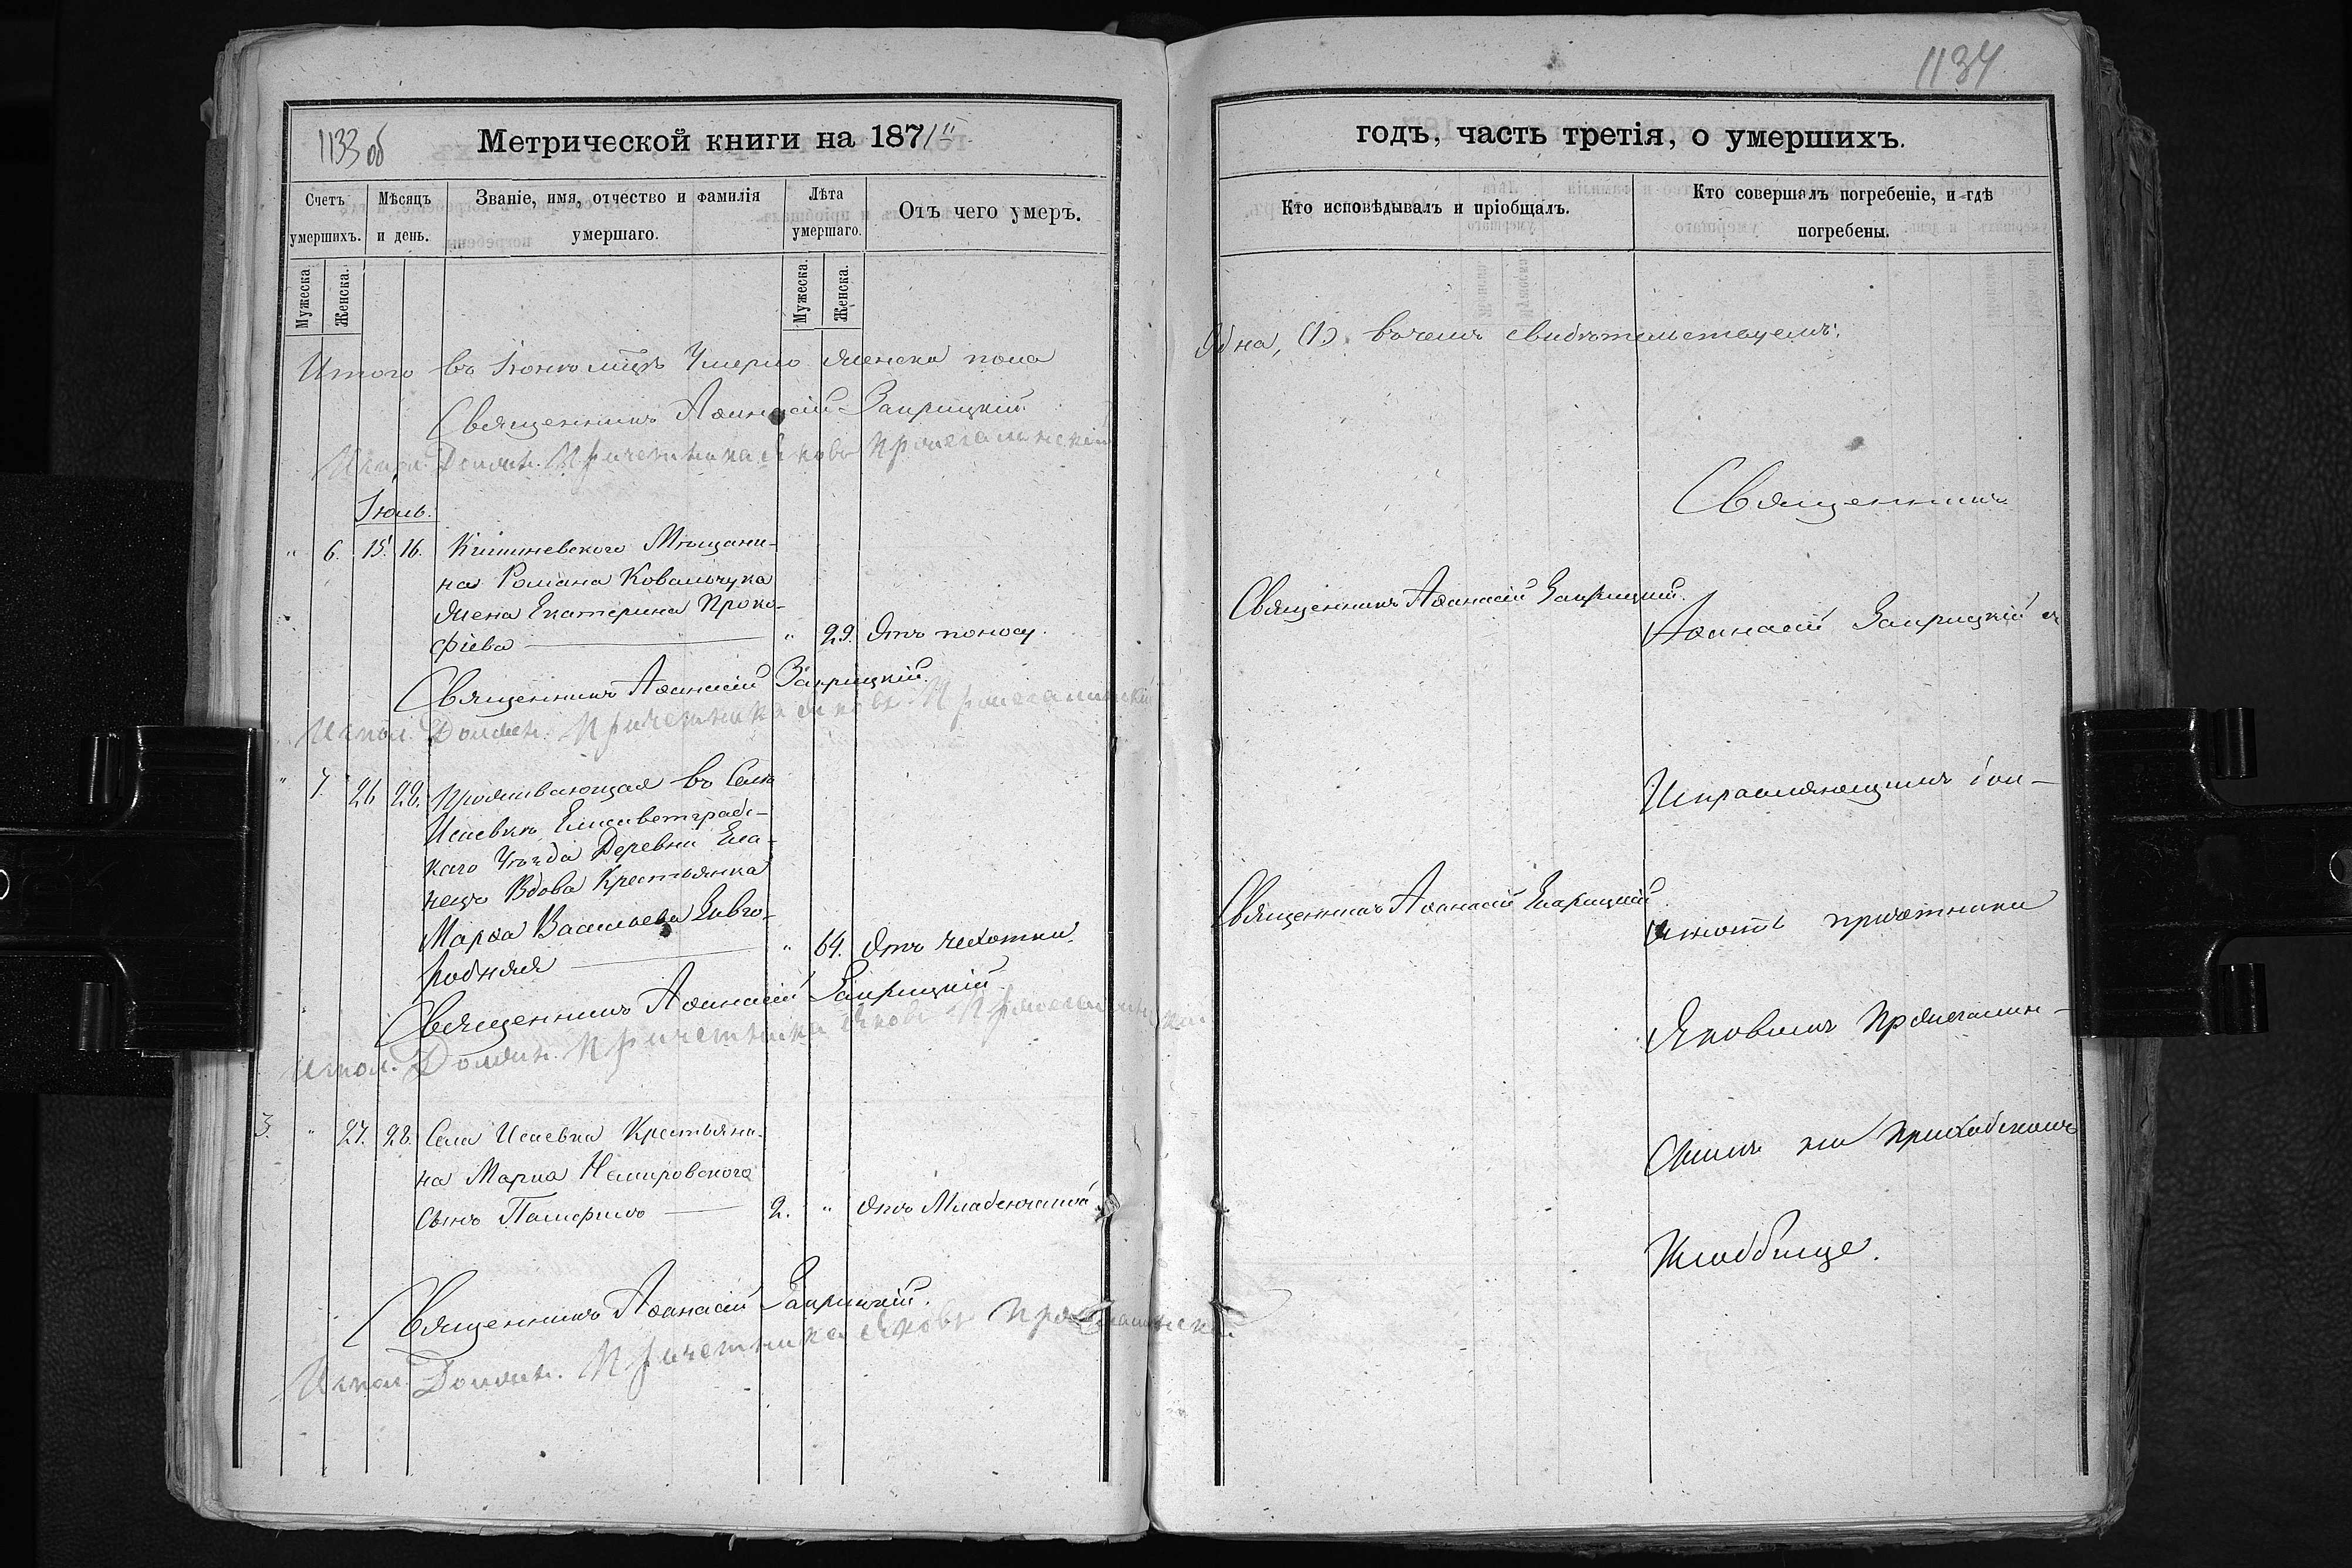 1133 об
Метрической книги на 1871й
Счетъ умершихъ.
Мѣсяцъ и день.
Званіе, имя, отчество и фамилія умершаго.
Лѣта умершаго.
Отъ чего умеръ.
Мужеска.
Женска.
Мужеска.
Женска.
Итого въ Іюнѣ мцѣ Умерло женска пола
Священникъ Аѳанасій Заприцкій
Испол. Должн. Причетника Яковъ
Іюль.
" 6. 15. 16. Кишиневского Мѣщани-
на Романа Ковальчука
жена Екатерина Проко-
фіева " 29. Отъ поносу.
Священникъ Аѳанасій Заприцкій.
Испол. Должн. Причетника Яковъ
" 7. 26 28. Проживающая въ Селѣ
Исаевкѣ Елисаветградс-
каго Уѣзда Деревни Ела-
нецъ Вдова Крестьянка
Марѳа Васильева
" 64. Отъ чахотки.
Священникъ Аѳанасій Заприцкій
Испол. Должн. Причетника Яковъ
3. " 27. 28. Села Исаевка Крестьяни-
на Марка Немировского
сынъ Памфилъ 2. " Отъ Младенческой
Священникъ Аѳанасій Заприцкій.
Испол. Должн. Причетника Яковъ
1134
годъ, часть третія, о умершихъ.
Кто исповѣдывалъ и пріобщалъ.
Кто совершалъ погребеніе, и гдѣ
погребены.
Одна, (1). въ чемъ свидѣтельствуемъ:
Священникъ
Священникъ Аѳанасій Заприцкій.
Аѳанасій Заприцкій съ
Исправляющимъ дол-
Священникъ Аѳанасій Заприцкій
жность причетника
Яковомъ
скимъ на приходскомъ
Кладбище.